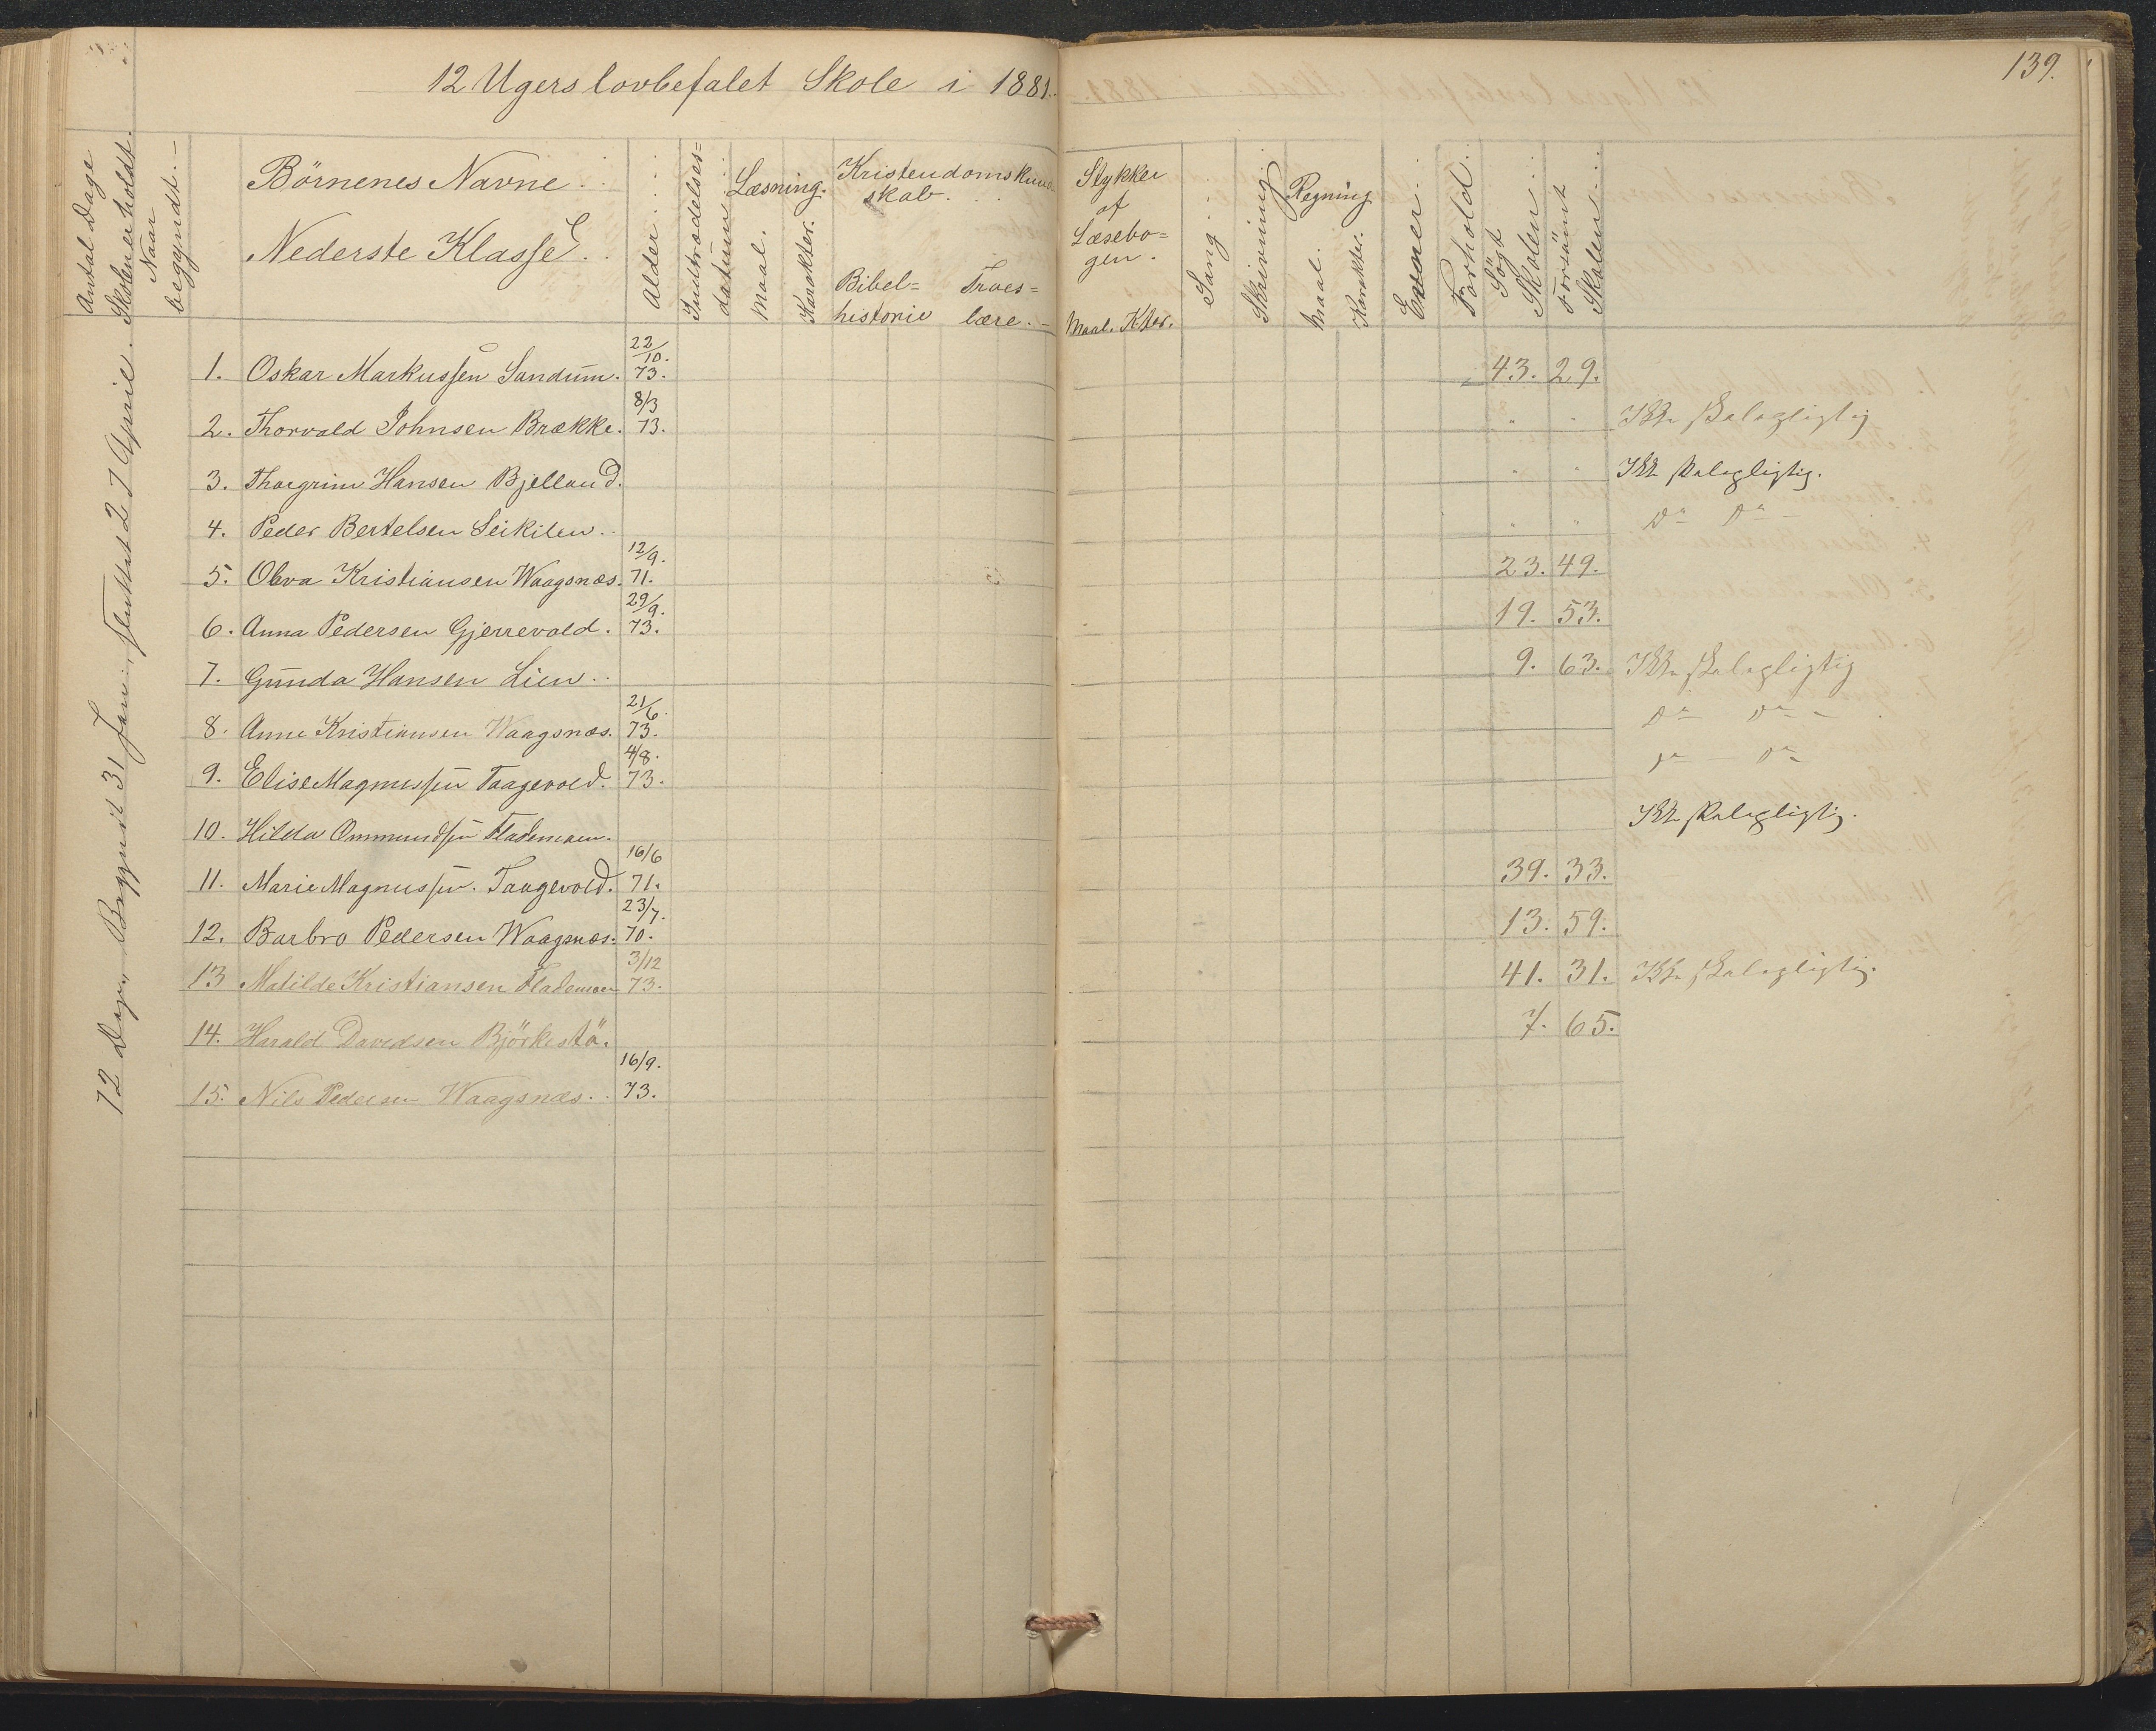 139.
12 Ugers lovbefalet Skole i 1881.
Antal Dage
Skolen er holdt.
Naar
begyndt.
Börnenes Navne
Nederste Klasse
Alder
Indtrædelses=
datum
Læsning.
Maal.
Karakter.
Kristendomskund
skab.
Bibel=
historie
Troes=
lære.
Stykker
af
Læsebo=
gen.
Maal. Kter.
Sang
Skrivning
Regning
Maal.
Karakter.
Evner
Forhold
Sögt
Skolen
Forsömt
Skolen
72 Dage. Begyndt 31 Jan. sluttet 27 April.
1. Oskar Markussen Sandum. 22/10. 73. 43. 29.
2. Thorvald Johnsen Brække. 8/3 73. " " Ikke skolepligtig
3. Thorgrim Hansen Bjelland. " " Ikke skolepligtig.
4. Peder Bertelsen Seikilen. " " Do Do
5. Olava Kristiansen Waagsnæs. 12/9. 71. 23. 49.
6. Anna Pedersen Gjerrevold. 29/9. 73. 19. 53.
7. Gunda Hansen Lien. 9. 63. Ikke skolepligtig
8. Anne Kristiansen Waagsnæs. 21/6. 73. Do Do
9. Elise Magnussen Taagevold. 4/8. 73. Do Do
10. Hilda Ommundsen Flademoen. Ikke skolepligtig.
11. Marie Magnussen. Taagevold. 16/6 71. 39. 33.
12. Barbro Pedersen Waagsnæs. 23/7. 70. 13. 59.
13 Matilde Kristiansen Flademoen 3/12 73. 41. 31. Ikke skolepligtig.
14. Harald Davidsen Björkestö. 7. 65.
15. Nils Pedersen Waagsnæs. 16/9. 73.